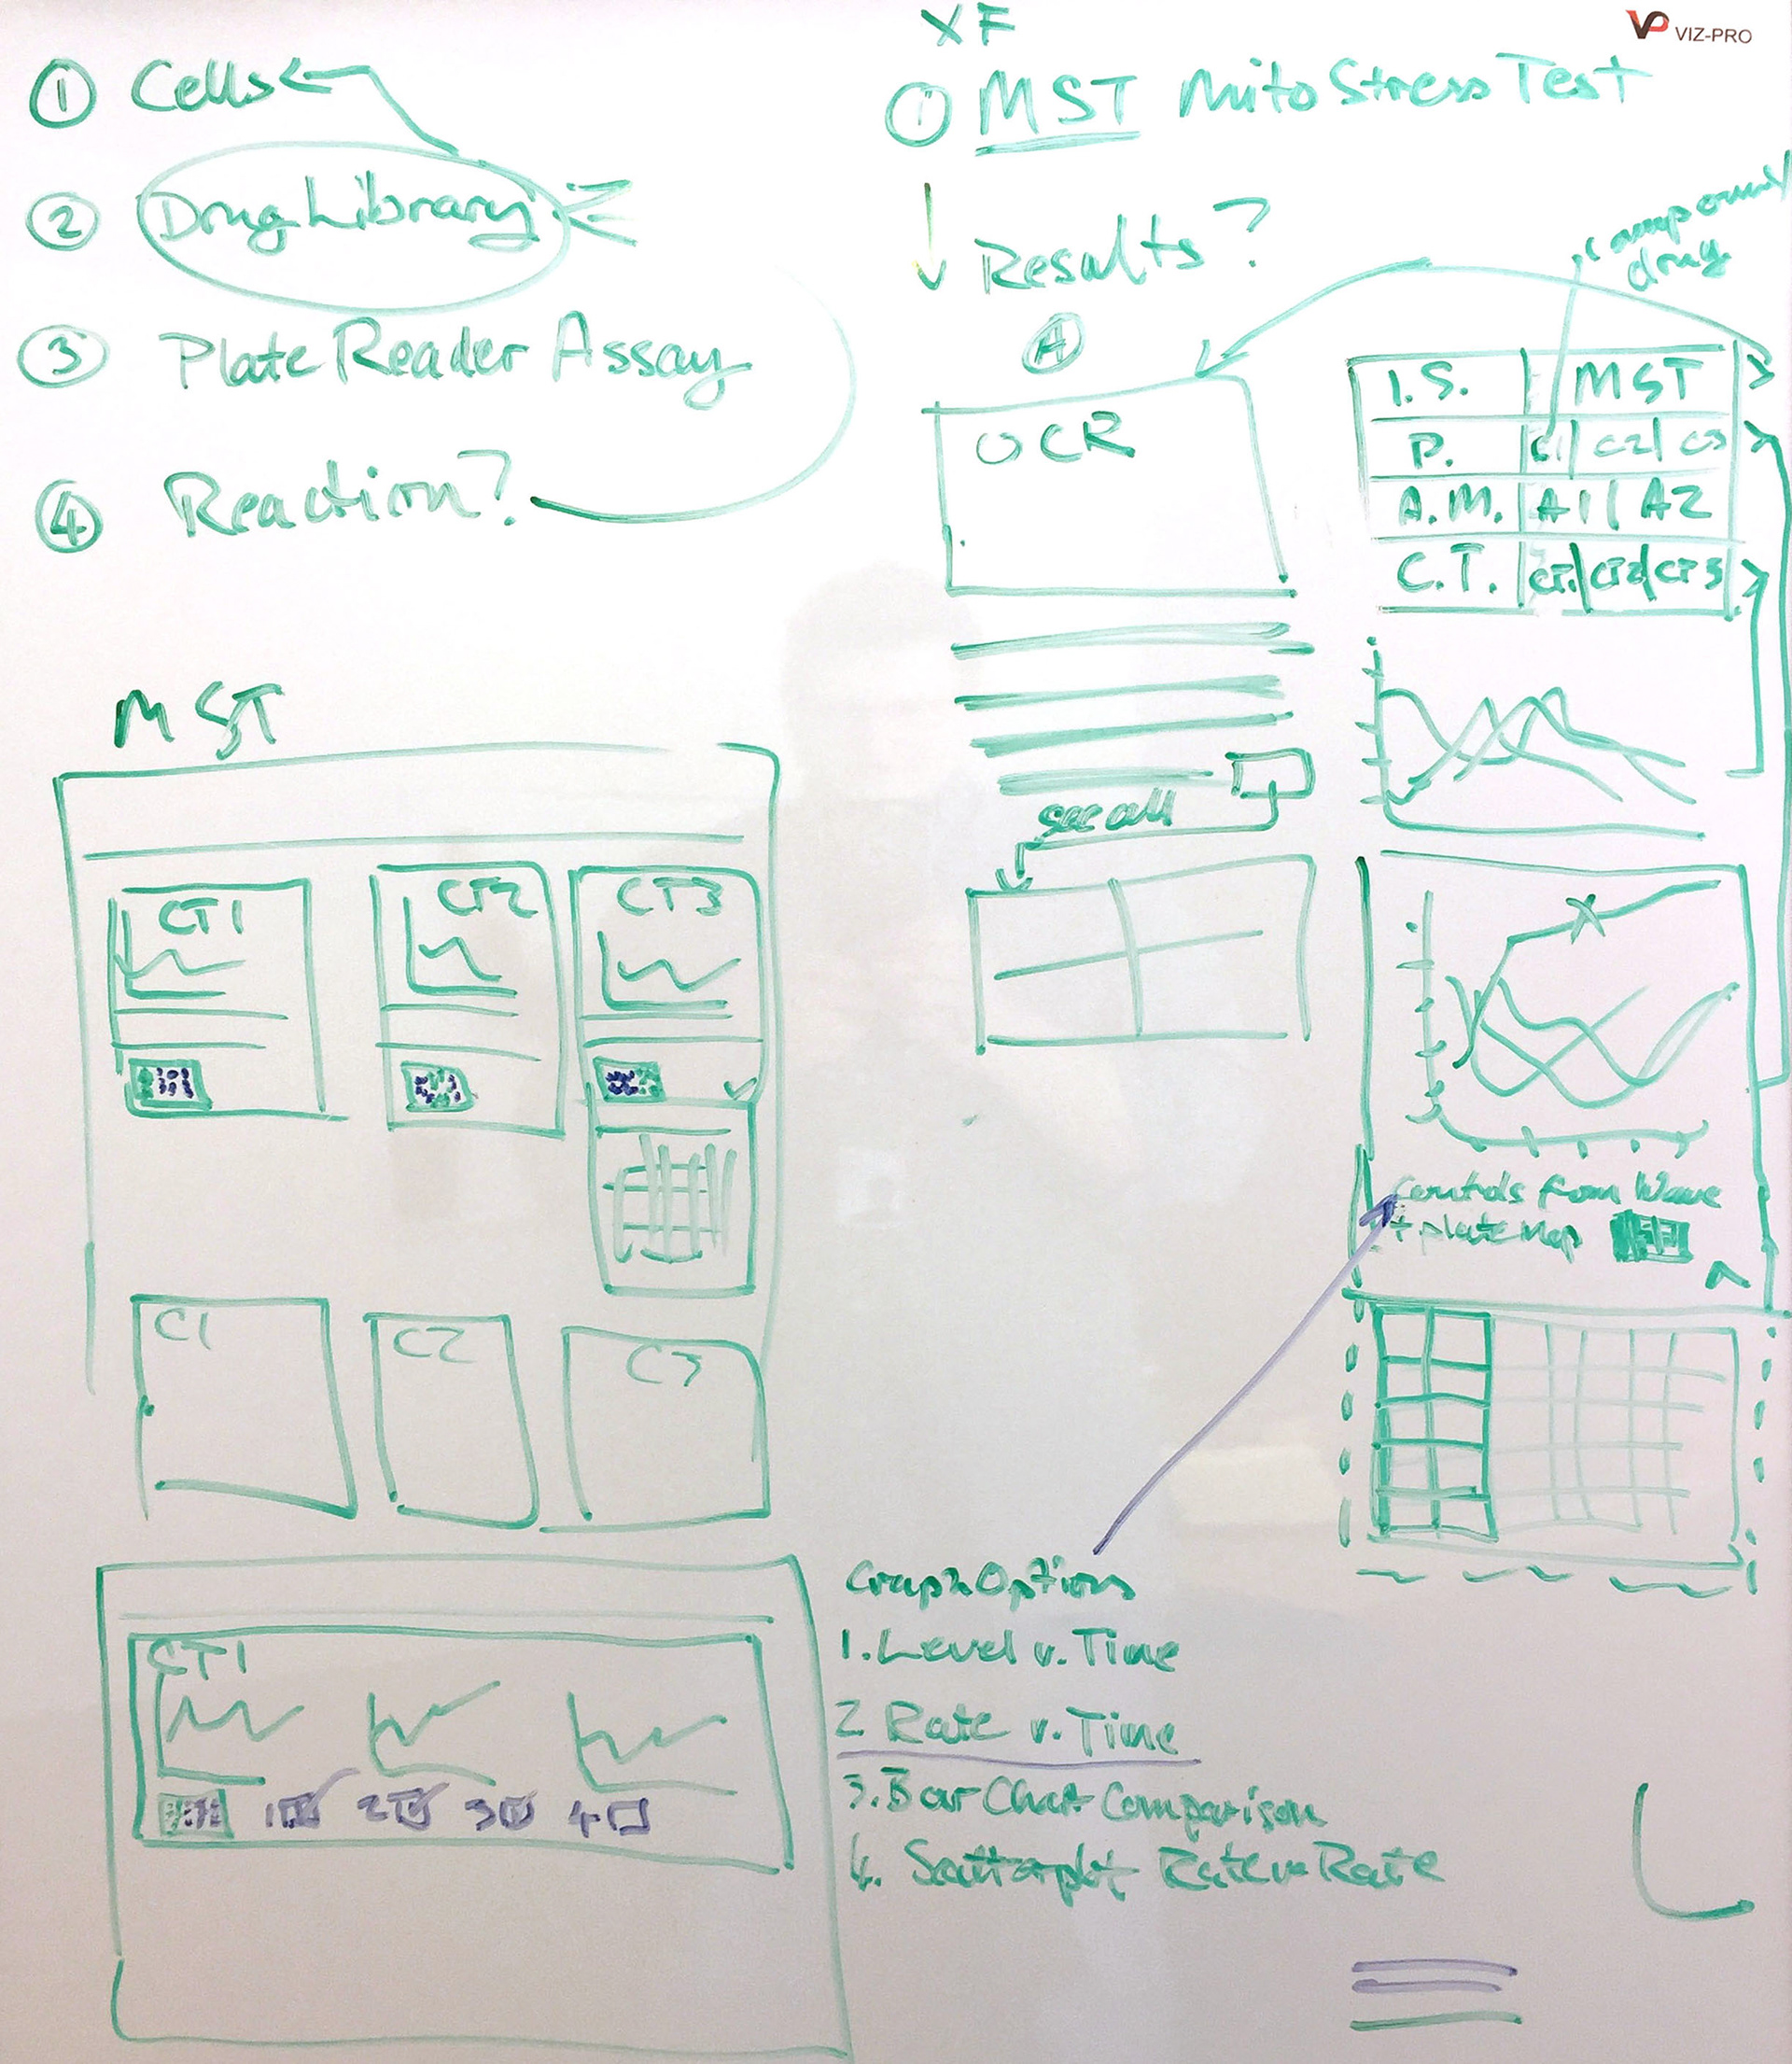 ① Cells
② Drug Library
③ Plate Reader Assay
④ Reaction?
XF
VP VIZ-PRO
① MST Mito Stress Test
Results?
compound
drug
A
OCR
I.S. MST
P. C1 C2 C3
A.M. A1 A2
C.T. CT1 CT2 CT3
see all
MST
CT1 CT2 CT3
C1 C2 C3
Controls from Wave
+ plate Map
CT1
1 2 3 4
Graph Options
1. Level v. Time
2 Rate v. Time
3. Bar Chart Comparison
4. Scatterplot Rate v. Rate